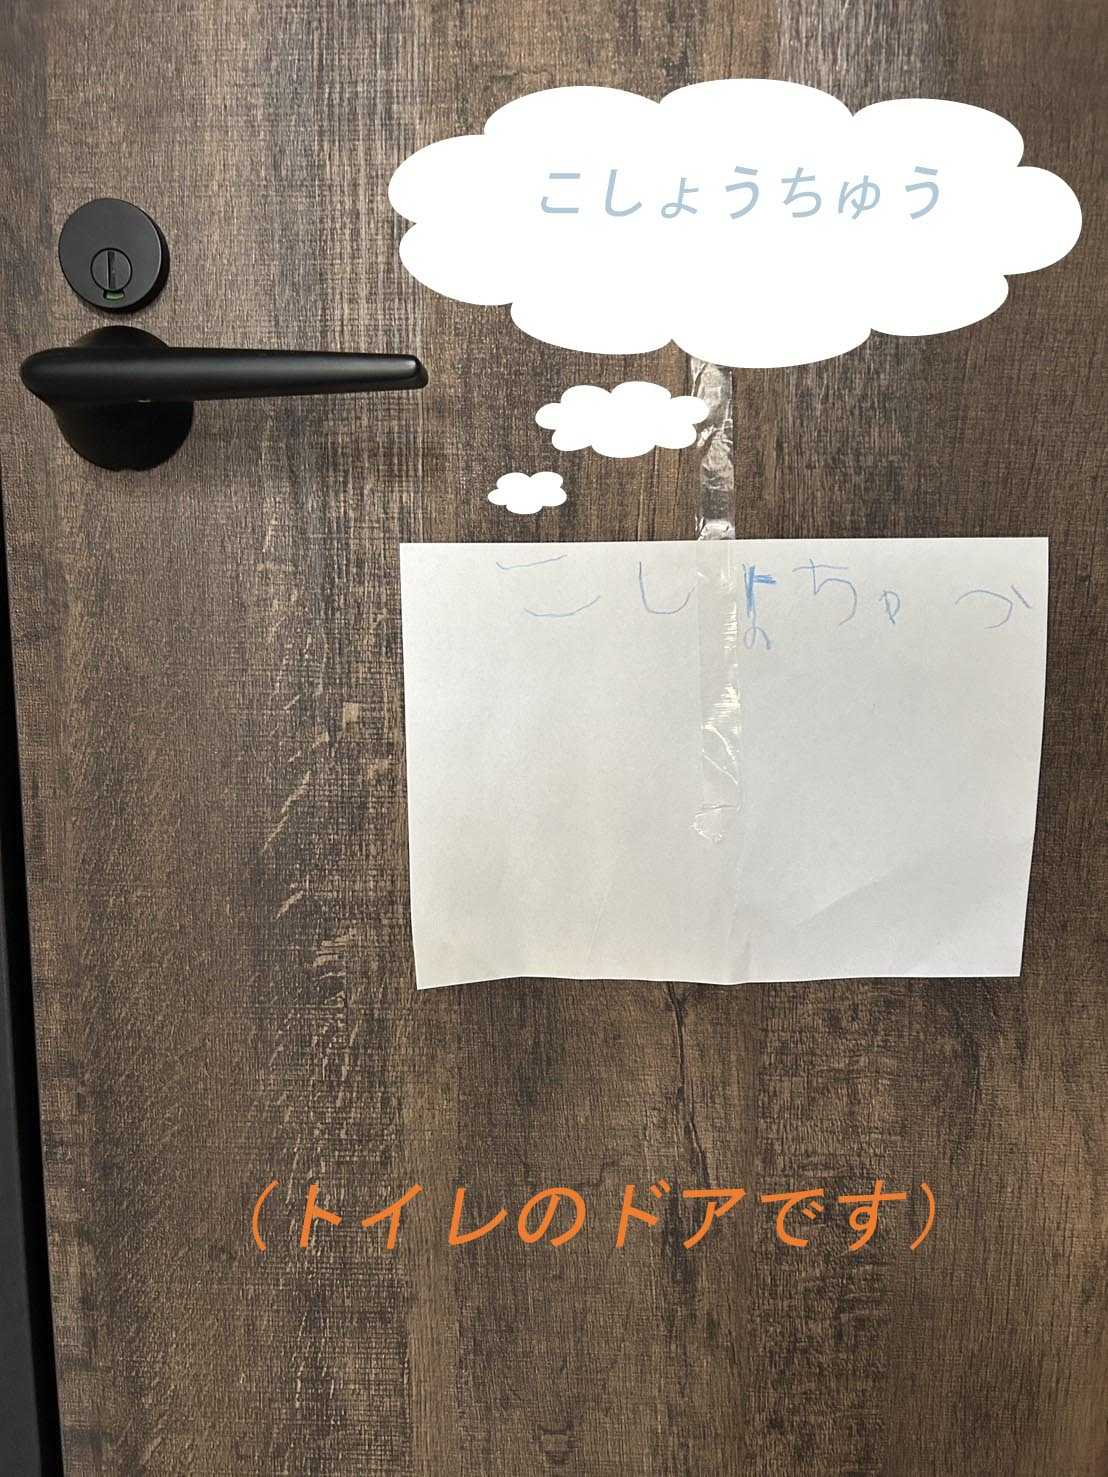 こしょうちゅう
こしょちゅう
（トイレのドアです）